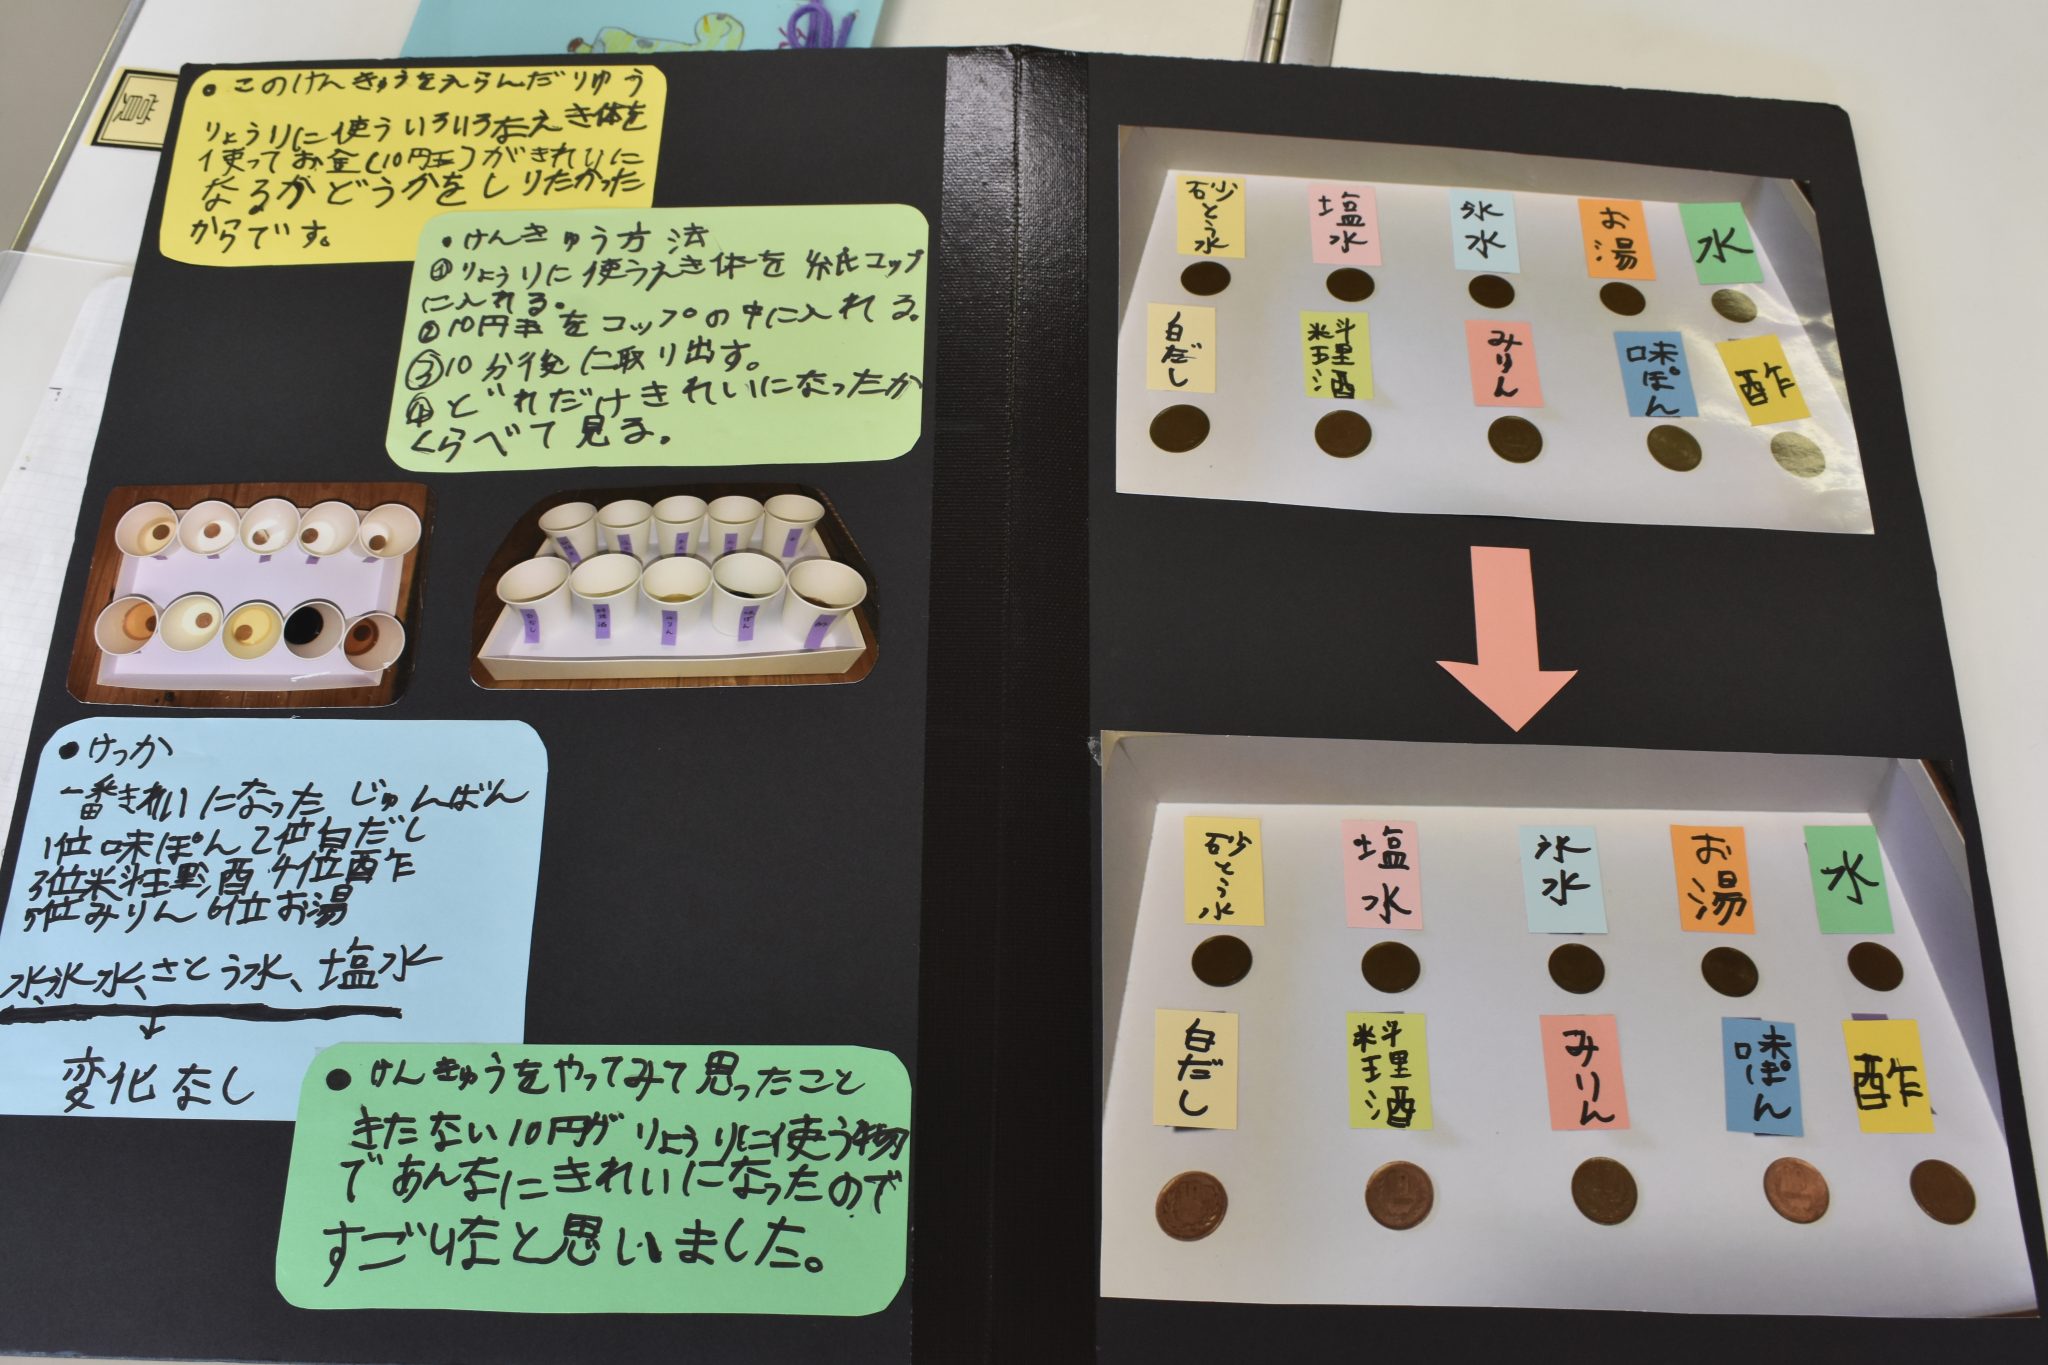 ・このけんきゅうをえらんだりゆう
りょうりに使ういろいろなえき体を
使ってお金(10円玉)がきれいに
なるかどうかをしりたかった
からです。
・けんきゅう方法
①りょうりに使うえき体を紙コップ
に入れる。
②10円玉をコップの中に入れる。
③10分後に取り出す。
④どれだけきれいになったか
くらべて見る。
白だし
料理酒
みりん
味ぽん
酢
●けっか
一番きれいになったじゅんばん
1位味ぽん2位白だし
3位料理酒4位酢
5位みりん6位お湯
水、氷水、さとう水、塩水
↓
変化なし
●けんきゅうをやってみて思ったこと
きたない10円がりょうりに使う物
であんなにきれいになったので
すごいなと思いました。
砂とう水
塩水
氷水
お湯
水
白だし
料理酒
みりん
味ぽん
酢
砂とう水
塩水
氷水
お湯
水
白だし
料理酒
みりん
味ぽん
酢